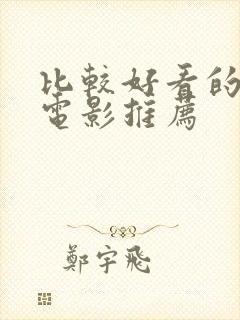 比較好看的
電影推薦
鄭宇飛